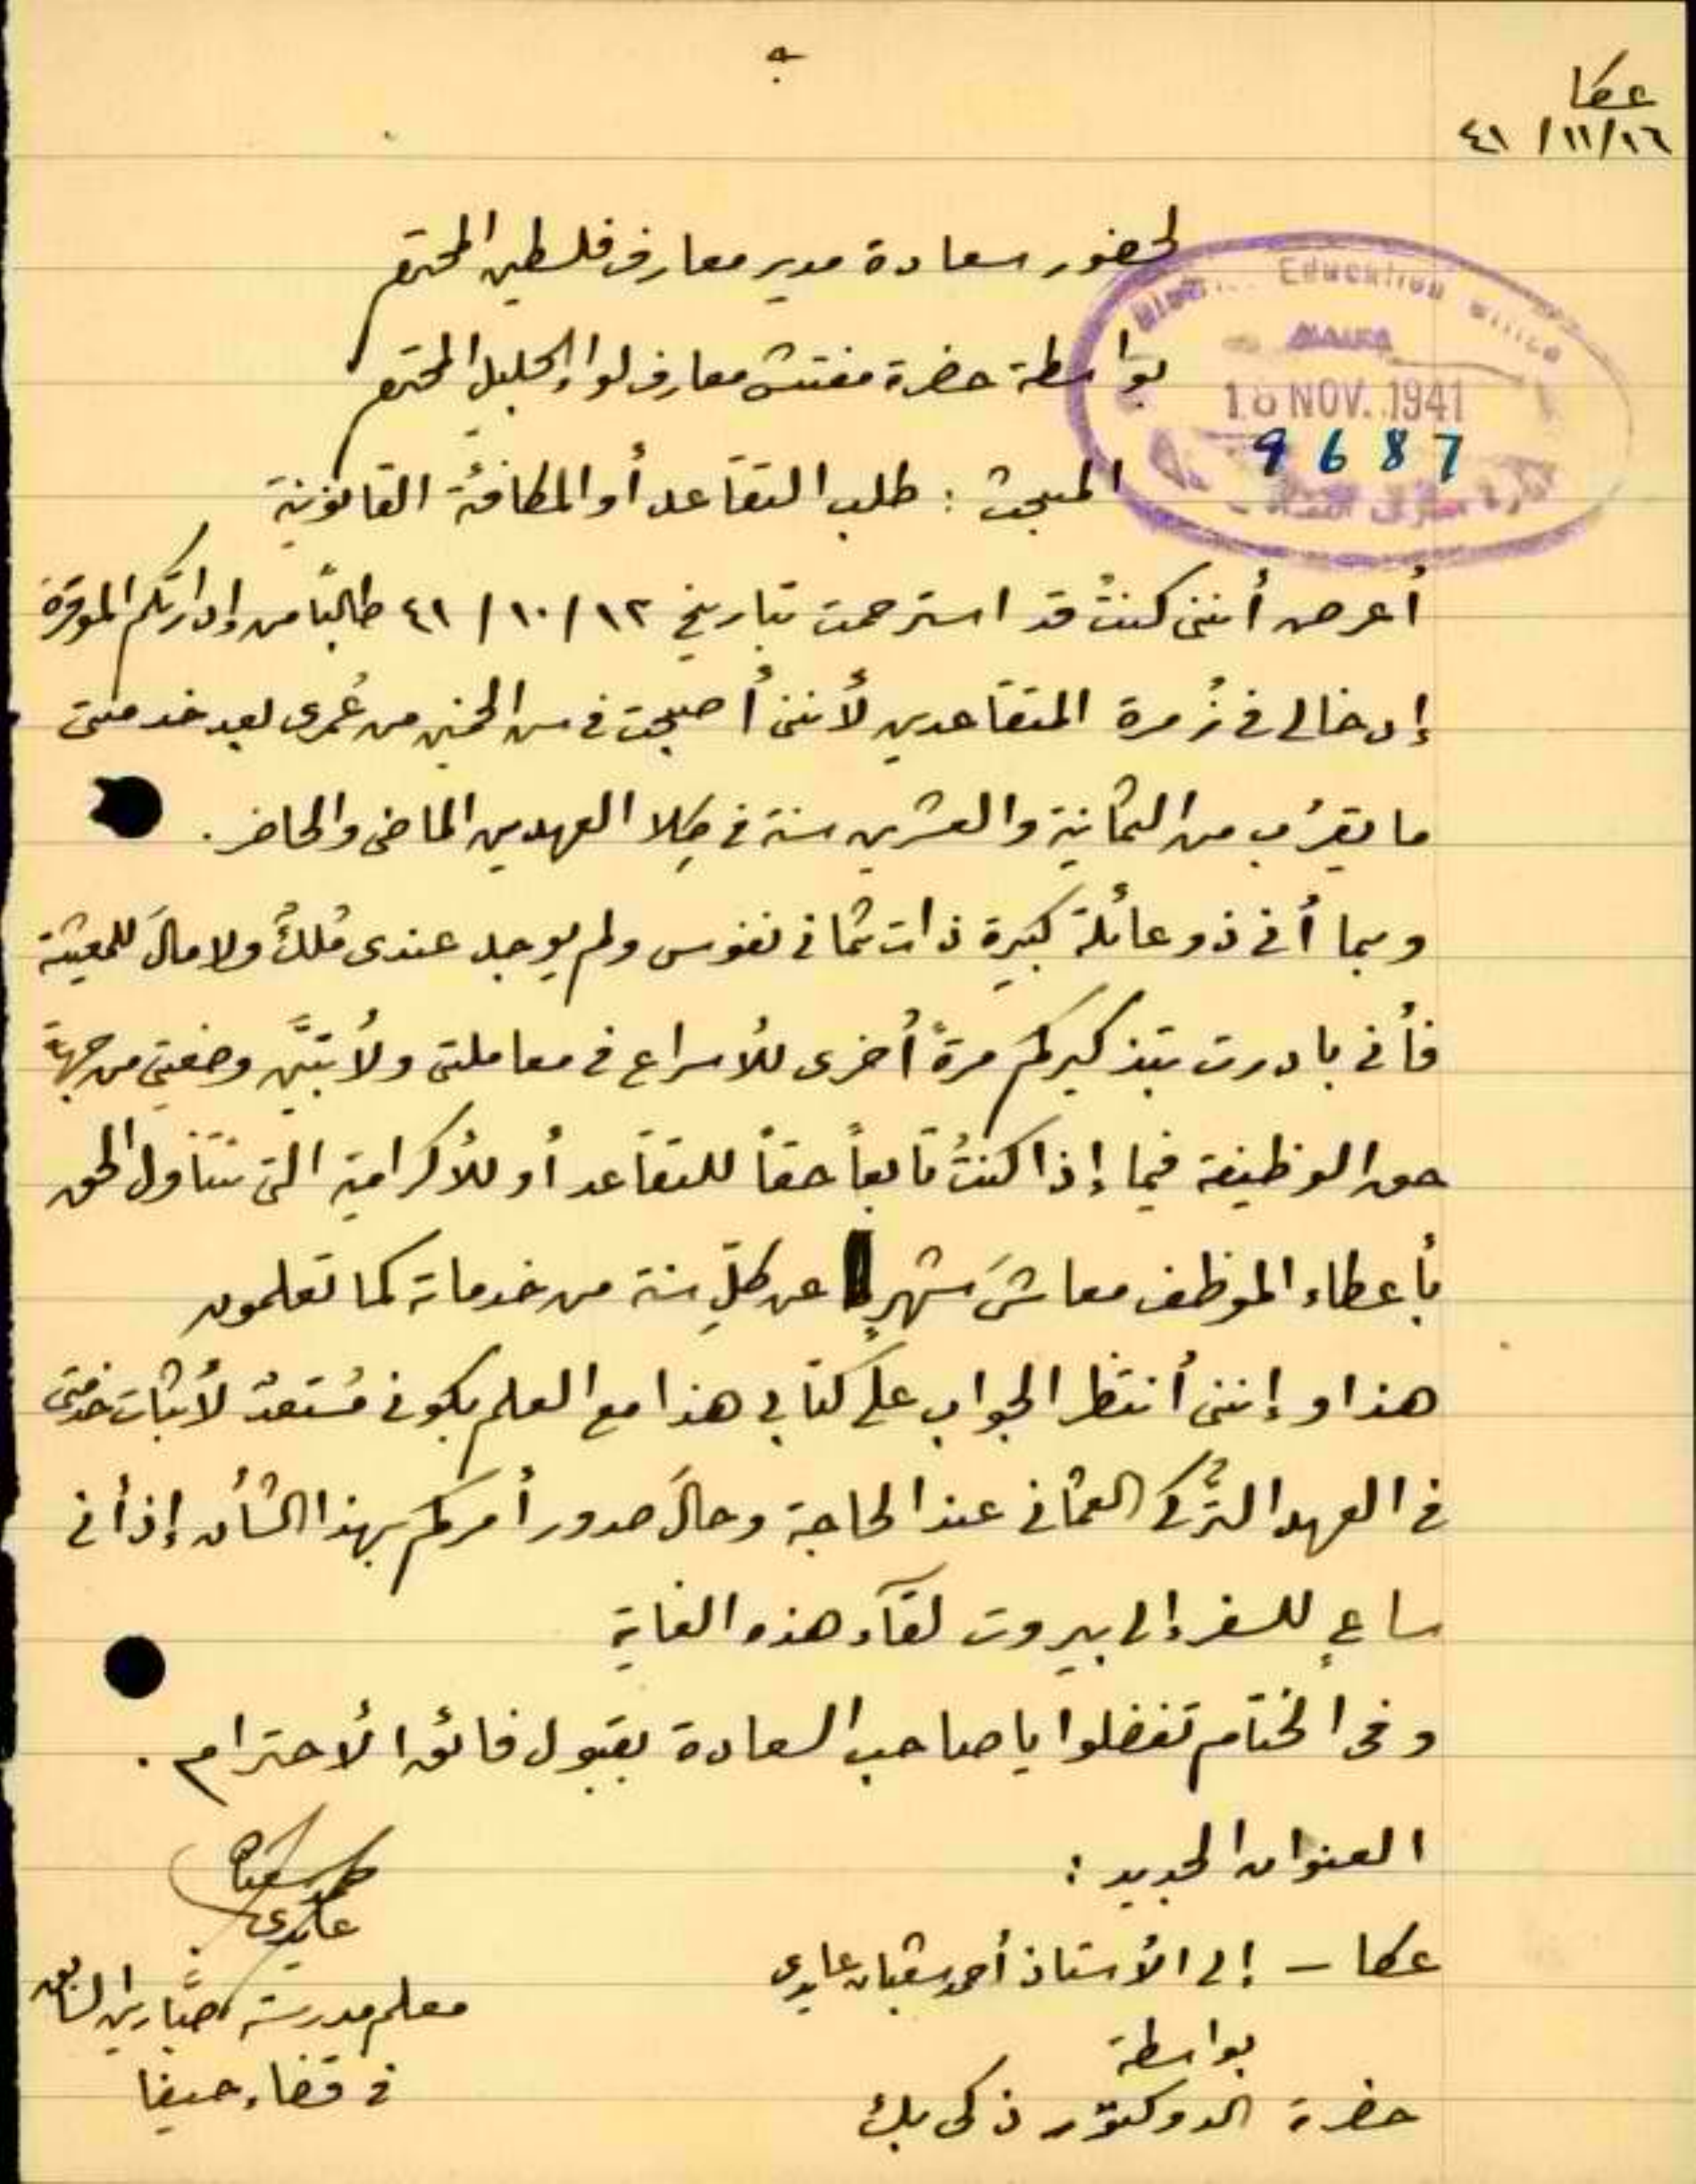 عكا
١٦/١١/ ٤١
لحضور سعادة مدير معارف فلسطين المحترم
بواسطة حضرة مفتش معارف لواء الجليل المحترم
Education Office
HAIFA
18 NOV. 1941
9687
المبحث : طلب التقاعد أو المكافئة القانونية
أعرض أنني كنتُ قد استرحمت بتاريخ ١٢/ ١٠/ ٤١ طالبًا من إدارتكم الموقرة
إدخالي في زُمرة المتقاعدين لأنني أصبحت في سن الخمسين من عُمري بعد خدمتي
ما يقرُب من الثمانية والعشرين سنة في كِلا العهدين الماضي والحاضر .
وبما أني ذو عائلة كبيرة ذات ثماني نفوس ولم يوجد عندي مُلكٌ ولا مالَ للمعيشة
فأني بادرت بتذكيركم مرةً أخرى للأسراع في معاملتي ولأتبيَّن وضعيتي من جهة
حق الوظيفة فيما إذا كنتُ تابعاً حقاً للتقاعد أو للأكرامية التي تتناول الحق
بأعطاء الموظف معاشَ شهرٍ عن كلِّ سنة من خدماته كما تعلمون
هذا وإنني أنتظر الجواب على كتابي هذا مع العلم بكوني مُستعدٌ لأثبات خدمتي
في العهد التُّركي العثماني عند الحاجة وحالَ صدور أمركم بهذا الشأن إذ أني
ساعٍ للسفر إلى بيروت لقآء هذه الغاية
وفي الختام تفضلوا يا صاحب السعادة بقبول فائق الأحترام .
العنوان الجديد :
عكا - إلى الأستاذ أحمد شعبان عايدي
بواسطة
حضرة الدوكتور ذكي بك
أحمد شعبان
عايدي
معلم مدرسة صبَّارين السابق
في قضاء حيفا